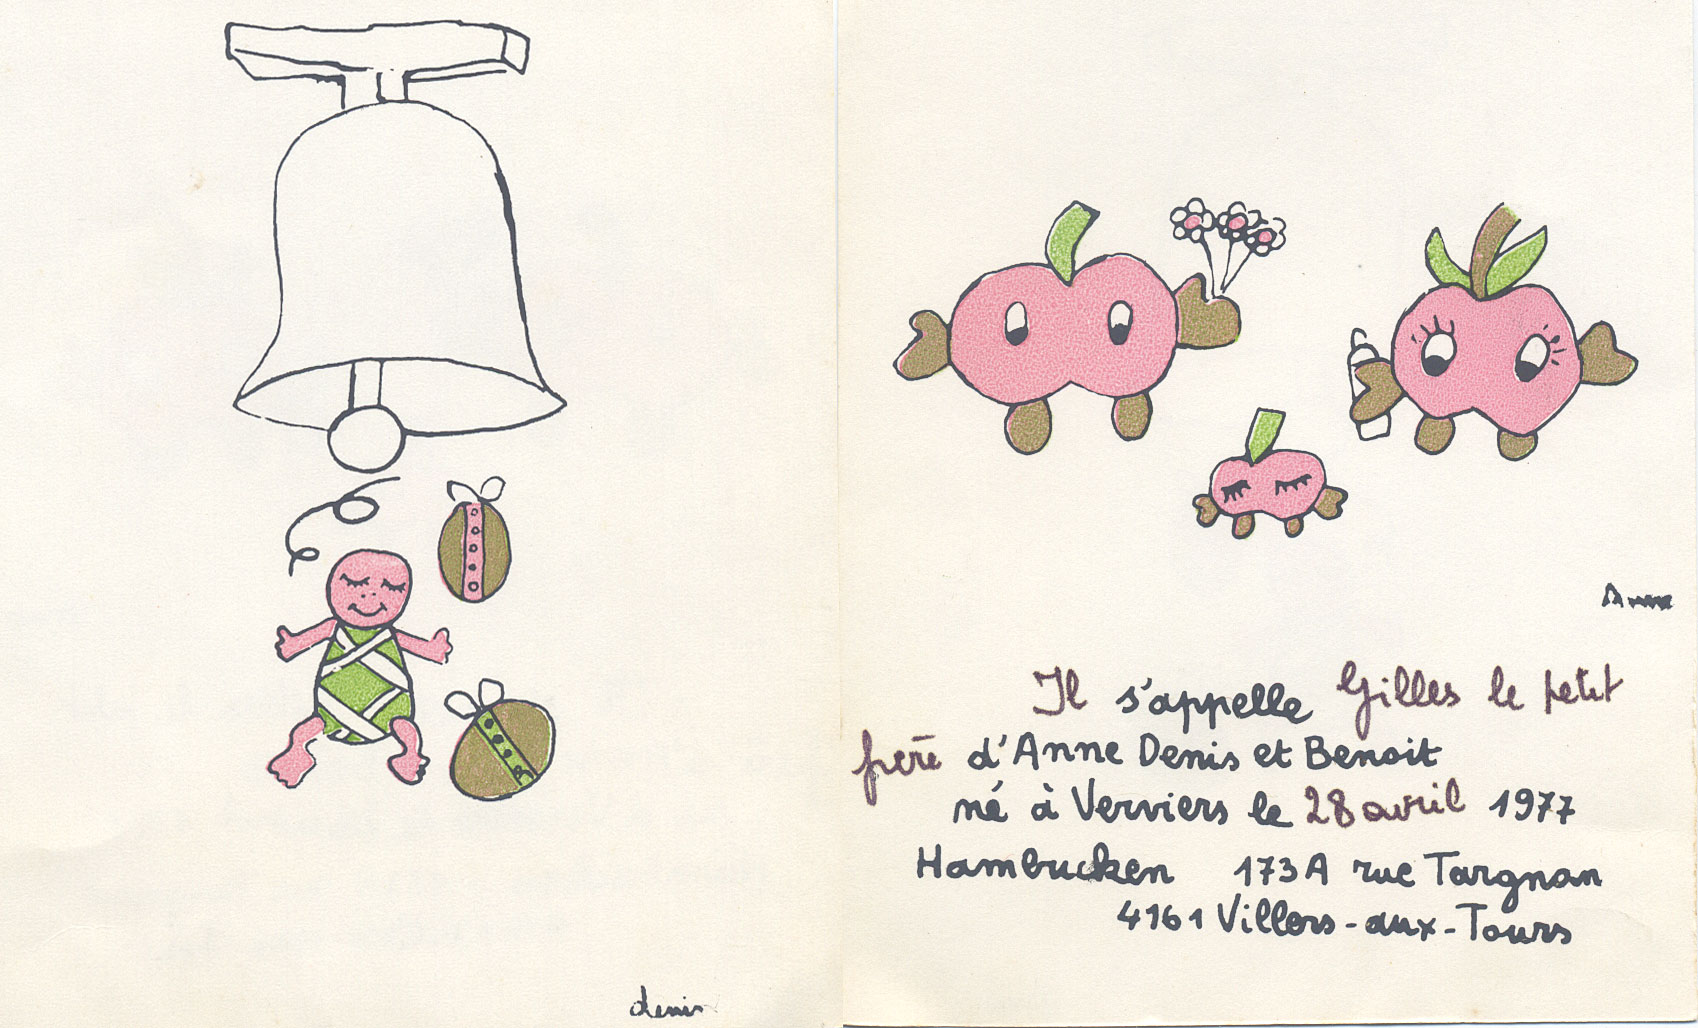 denis
Anne
Il s'appelle Gilles le petit
frère d'Anne Denis et Benoit
né à Verviers le 28 avril 1977
Hambucken 173A rue Targnon
4161 Villers-aux-Tours